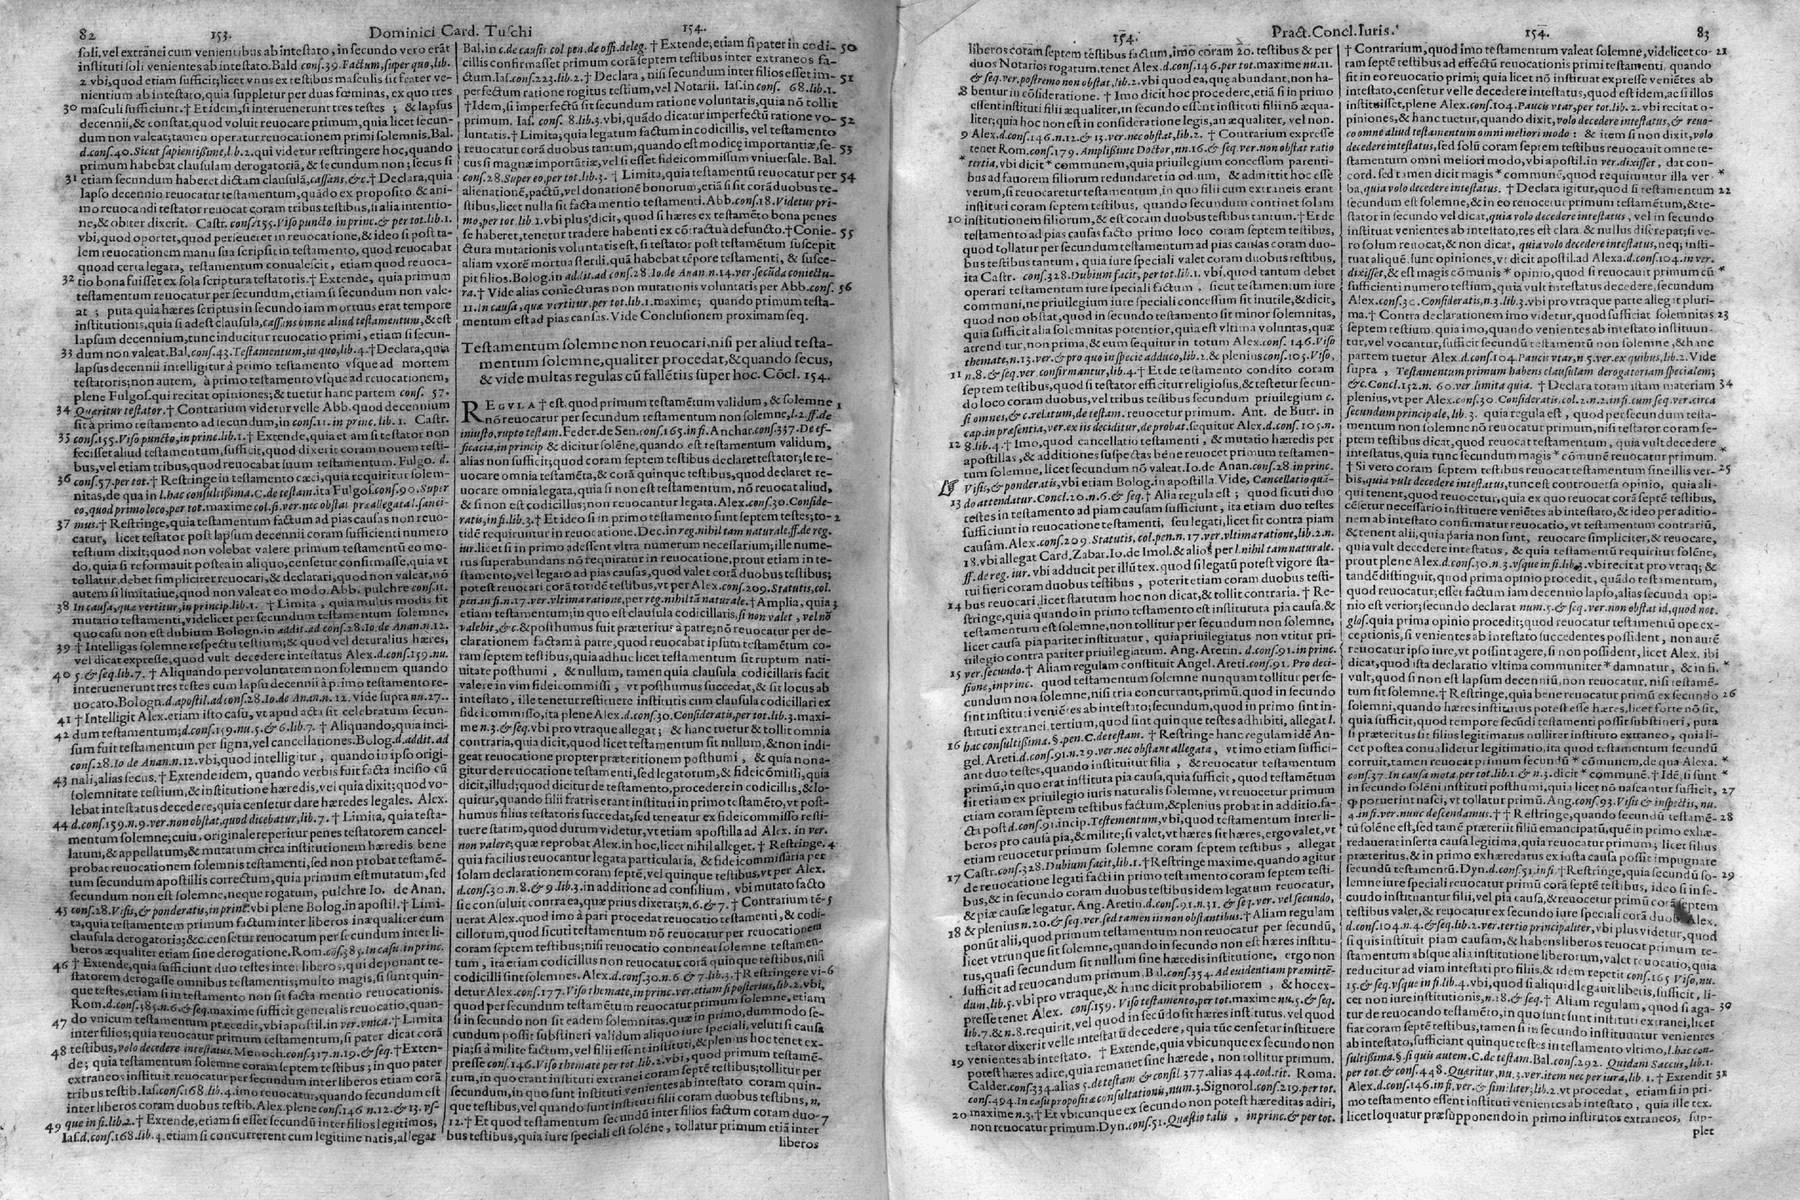 82 153. Dominici Card. Tuschi 154.
soli. vel extranei cum venientibus ab intestato, in secundo vero erāt
instituti soli venientes ab intestato. Bald cons. 39. Factum, super quo, lib.
2. vbi, quod etiam sufficit; licet vnus ex testibus masculis sit frater ve-
nientium ab intestato, quia suppletur per duas fœminas, ex quo tres
30 masculi sufficiunt. † Et idem, si interuenerunt tres testes ; & lapsus
decennii, & constat, quod voluit reuocare primum, quia licet secun-
dum non valeat; tamen operatur reuocationem primi solemnis. Bal.
d. cons. 40. Sicut sapientissime, l. b. 2. qui videtur restringere hoc, quando
primum habebat clausulam derogatoriā, & secundum non; secus si
31 etiam secundum haberet dictam clausulā, cassans, &c. † Declara, quia
lapso decennio reuocatur testamentum, quādo ex proposito & ani-
mo reuocandi testator reuocat coram tribus testibus, si alia intentio-
ne, & obiter dixerit. Castr. cons. 155. Viso puncto in princ. & per tot. lib. 1.
vbi, quod oportet, quod perseueret in reuocatione, & ideo si post ta-
lem reuocationem manu sua scripsit in testamento, quod reuocabat
quoad certa legata, testamentum conualescit, etiam quod reuoca-
32 tio bona fuisset ex sola scriptura testatoris. † Extende, quia primum
testamentum reuocatur per secundum, etiam si secundum non vale-
at ; puta quia hæres scriptus in secundo iam mortuus erat tempore
institutionis, quia si adest clausula, cassans omne aliud testamentum, & est
lapsum decennium, tunc inducitur reuocatio primi, etiam si secun-
33 dum non valeat. Bal. cons. 43. Testamentum, in quo, lib. 4. † Declara, quia
lapsus decennii intelligitur à primo testamento vsque ad mortem
testatoris; non autem, à primo testamento vsque ad reuocationem,
plene Fulgos. qui recitat opiniones; & tuetur hanc partem cons. 57.
34 Quæritur testator. † Contrarium videtur velle Abb. quod decennium
sit à primo testamento ad secundum, in cons. 11. in princ. lib. 1. Castr.
35 cons. 155. Viso puncto, in princ. lib. 1. † Extende, quia et am si testator non
fecisset aliud testamentum, sufficit, quod dixerit coram nouem testi-
bus, vel etiam tribus, quod reuocabat suum testamentum. Fulgo. d.
36 cons. 57. per tot. † Restringe in testamento cæci, quia requiritur solem-
nitas, de qua in l. hac consultissima. C. de testam. ita Fulgos. cons. 90. Super
eo, quod primo loco, per tot. maxime col. fi. ver. nec obstat præallegata l. sanci-
37 mus. † Restringe, quia testamentum factum ad pias causas non reuo-
catur, licet testator post lapsum decennii coram sufficienti numero
testium dixit; quod non volebat valere primum testamentū eo mo-
do, quia si reformauit postea in aliquo, censetur confirmasse, quia vt
tollatur, debet simpliciter reuocari, & declarari, quod non valeat, nō
autem si limitatiue, quod non valeat eo modo. Abb. pulchre cons. 11.
38 In causa, quæ vertitur, in princip. lib. 1. † Limita, quia multis modis fit
mutatio testamenti, videlicet per secundum testamentum solemne,
quo casu non est dubium Bologn. in addit. ad cons. 28. Io. de Anan. n. 12.
39 † Intelligas solemne respectu testium; & quod vel detur alius hæres,
vel dicat expresse, quod vult decedere intestatus Alex. d. cons. 159. nu.
40 5. & seq. lib. 7. † Aliquando per voluntatem non solemnem quando
interuenerunt tres testes cum lapsu decennii à primo testamento re-
uocato. Bologn. d. apostil. ad cons. 28. Io. de Anan. n. 12. vide supra nu. 27..
41 † Intelligit Alex. etiam isto casu, vt apud acta sit celebratum secun-
42 dum testamentum; d. cons. 159. nu. 5. & 6. lib. 7. † Aliquando, quia inci-
sum fuit testamentum per signa, vel cancellationes. Bolog. d. addit. ad
cons. 28. Io de Anan. n. 12. vbi, quod intelligitur, quando in ipso origi-
43 nali, alias secus. † Extende idem, quando verbis fuit facta incisio cū
solemnitate testium, & institutione hæredis, vel quia dixit; quod vo-
lebat intestatus decedere, quia censetur dare hæredes legales. Alex.
44 d. cons. 159. n. 9. ver. non obstat, quod dicebatur, lib. 7. † Limita, quia testa-
mentum solemne; cuiu, originale reperitur penes testatorem cancel-
latum, & appellatum, & mutatum circa institutionem hæredis bene
probat reuocationem solemnis testamenti, sed non probat testamē-
tum secundum apostillis correctum, quia primum est mutatum, sed
secundum non est solemne, neque rogatum, pulchre Io. de Anan.
45 cons. 28. Visis, & ponderatis, in princ. vbi plene Bolog. in apostil. † Limi-
ta, quia testamentum primum factum inter liberos inæqualiter cum
clausula derogatoria; &c. censetur reuocatum per secundum inter li-
beros æqualiter etiam sine derogatione. Rom. cons. 385. In casu in princ.
46 † Extende, quia sufficiunt duo testes inter liberos, qui deponant te-
statorem derogasse omnibus testamentis; multo magis, si sunt quin-
que testes, etiam si in testamento non sit facta mentio reuocationis.
Rom. d. cons. 385. n. 6. & seq. maxime sufficit generalis reuocatio, quan-
do vnicum testamentum præcedit, vbi apostil. in ver. vnica. † Limita
47 inter filios; quia reuocatur primum testamentum, si pater dicat corā
testibus, volo decedere intestatus. Menoch. cons. 317. n. 19. & seq. † Exten-
48 de; quia testamentum solemne coram septem testibus; in quo pater
extraneos instituit reuocatur per secundum inter liberos etiam corā
tribus testib. Ias. cons. 168. lib. 4. imo reuocatur, quando secundum est
inter liberos coram duobus testib. Alex. plene cons. 146 n. 12. & 13. vs-
que in fi. lib. 2. † Extende, etiam si esset secundū inter filios legitimos,
49 Ias. d. cons. 168. lib. 4. etiam si concurrerent cum legitime natis, allegat
Bal. in c. de causis col pen. de offi. deleg. † Extende, etiam si pater in codi- 50
cillis confirmasset primum corā septem testibus inter extraneos fa-
ctum. Ias. cons. 223. lib. 2. † Declara, nisi secundum inter filios esset im- 51
perfectum ratione rogitus testium, vel Notarii. Ias. in cons. 68. lib. 1.
† Idem, si imperfectū sit secundum ratione voluntatis, quia nō tollit
primum. Ias. cons. 8. lib. 3. vbi, quādo dicatur imperfectū ratione vo- 52
luntatis. † Limita, quia legatum factum in codicillis, vel testamento
reuocatur corā duobus tantum, quando est modicę importantiæ, se- 53
cus si magnæ importātiæ, vel si esset fideicommissum vniuersale. Bal.
cons. 28. Super eo, per tot. lib. 3. † Limita, quia testamentū reuocatur per 54
alienationē, pactū, vel donationē bonorum, etiā si sit corā duobus te-
stibus, licet nulla sit facta mentio testamenti. Abb. cons. 18. Videtur pri-
mo, per tot. lib 1. vbi plus dicit, quod si hæres ex testamēto bona penes
se haberet, tenetur tradere habenti ex cōtractu à defuncto. † Conie- 55
ctura mutationis voluntatis est, si testator post testamētum suscepit
aliam vxorē mortua sterili, quā habebat tēpore testamenti, & susce-
pit filios. Bolog. in addit. ad cons. 28. Io. de Anan. n. 14. ver. secūda coniectu-
ra. † Vide alias coniecturas non mutationis voluntatis per Abb. cons. 56
11. in causa, quæ vertitur. per tot. lib. 1. maxime; quando primum testa-
mentum est ad pias causas. Vide Conclusionem proximam seq.
Testamentum solemne non reuocari, nisi per aliud testa-
mentum solemne, qualiter procedat, & quando secus,
& vide multas regulas cū fallētiis super hoc. Cōcl. 154.
REGVLA † est, quod primum testamentum validum, & solemne 1
nō reuocatur per secundum testamentum non solemne, l. 2. ff. de
iniusto, rupto testam. Feder. de Sen. cons. 165. in fi. Anchar. cons. 337. De ef-
ficacia, in princip & dicitur solēne, quando est testamentum validum,
alias non sufficit; quod coram septem testibus declaret testator; se re-
uocare omnia testamēta, & corā quinque testibus, quod declaret re-
uocare omnia legata, quia si non est testamentum, nō reuocat aliud,
& si non est codicillus; non reuocantur legata. Alex. cons. 30. Conside-
ratis, in fi. lib. 3. † Et ideo si in primo testamento sunt septem testes; to- 2
tidē requiruntur in reuocatione. Dec. in reg. nihil tam naturale. ff. de reg.
iur. licet si in primo adessent vltra numerum necessarium; ille nume-
rus superabundans nō requiratur in reuocatione, prout etiam in te-
stamento, vel legato ad pias causas, quod valet corā duobus testibus;
potest reuocari corā totidē testibus, vt per Alex. cons. 209. Statutis, col.
pen. in fi. n. 17. ver. vltima ratione, per reg. nihil tā naturale. † Amplia, quia 3
etiam testamentum; in quo est clausula codicillaris, si non valet, vel nō
valebit, &c. & posthumus fuit præteritus à patre; nō reuocatur per de-
clarationem factam à patre, quod reuocabat ipsum testamentum co-
ram septem testibus, quia adhuc licet testamentum sit ruptum nati-
uitate posthumi, & nullum, tamen quia clausula codicillaris facit
valere in vim fideicommissi, vt posthumus succedat, & sit locus ab
intestato, ille tenetur restituere institutis cum clausula codicillari ex
fideicommisso, ita plene Alex. d. cons. 30. Consideratis, per tot. lib. 3. maxi-
me n. 3. & seq. vbi pro vtraque allegat; & hanc tuetur & tollit omnia
contraria, quia dicit, quod licet testamentum sit nullum, & non indi-
geat reuocatione propter præteritionem posthumi, & quia non a-
gitur de reuocatione testamenti, sed legatorum, & fideicōmissi, quia
dicit, illud; quod dicitur de testamento, procedere in codicillis, & lo-
quitur, quando filii fratris erant instituti in primo testamēto, vt post-
humus filius testatoris succedat, sed teneatur ex fideicommisso resti-
tuere statim, quod durum videtur, vt etiam apostilla ad Alex. in ver.
non valere; quæ reprobat Alex. in hoc, licet nihil alleget. † Restringe, 4
quia facilius reuocantur legata particularia, & fideicommissaria per
solam declarationem coram septē, vel quinque testibus, vt per Alex.
d. cons. 30. n. 8. & 9. lib. 3. in additione ad consilium, vbi mutato facto
sic consuluit contra ea, quæ prius dixerat; n. 6. & 7. † Contrarium tē- 5
uerat Alex. quod imo à pari procedat reuocatio testamenti, & codi-
cillorum, quod sicuti testamentum nō reuocatur per reuocationem
coram septem testibus; nisi reuocatio contineat solemne testamen-
tum, ita etiam codicillus non reuocatur corā quinque testibus, nisi
codicilli sint solemnes. Alex. d. cons. 30. n. 6. & 7. lib. 3. † Restringere vi- 6
detur Alex. cons. 177. Viso themate, in princ. ver. etiam si posterius, lib. 2. vbi,
quod per secundum testamētum reuocatur primum solemne, etiam
si in secundo non sit eadem solemnitas, quæ in primo, dummodo se-
cundum possit substineri validum aliquo iure speciali, veluti si causa
pia; si à milite factum, vel filii essent instituti, & plenius hoc tenet ex-
presse cons. 146. Viso themate per tot. lib. 2. vbi, quod primum testamē-
tum, in quo erant instituti extranei coram septē testibus; tollitur per
secundum, in quo sunt instituti venientes ab intestato coram quin-
que testibus, vel quando sunt instituti filii coram duobus testibus, n,
12. † Et quod testamentum secundū inter filios factum coram duo- 7
bus testibus, quia iure speciali est solēne, tollatur primum etiā inter
liberos
154. Pract. Concl. Iuris. 154. 83
liberos coram septem testibus factum, imo coram 20. testibus & per
duos Notarios rogatum. tenet Alex. d. cons. 146. per tot. maxime nu. 11.
& seq. ver. postremo non obstat, lib. 2. vbi quod ea, quę abundant, non ha-
8 bentur in cōsideratione. † Imo dicit hoc procedere, etiā si in primo
essent instituti filii æqualiter, in secundo essent instituti filii nō æqua-
liter; quia hoc non est in consideratione legis, an æqualiter, vel non.
9 Alex. d. cons. 146. n. 12. & 13. ver. nec obstat, lib. 2. † Contrarium expresse
tenet Rom. cons. 179. Amplissime Doctor, nu. 16. & seq. ver. non obstat ratio
* tertia, vbi dicit * communem, quia priuilegium concessum parenti-
bus ad fauorem filiorum redundaret in odium, & admittit hoc esse
verum, si reuocaretur testamentum, in quo filii cum extraneis erant
instituti coram septem testibus, quando secundum continet solam
10 institutionem filiorum, & est coram duobus testibus tantum. † Et de
testamento ad pias causas facto primo loco coram septem testibus,
quod tollatur per secundum testamentum ad pias causas coram duo-
bus testibus tantum, quia iure speciali valet coram duobus testibus,
ita Castr. cons. 328. Dubium facit, per tot. lib. 1. vbi, quod tantum debet
operari testamentum iure speciali factum, sicut testamentum iure
communi, ne priuilegium iure speciali concessum sit inutile, & dicit,
quod non obstat, quod in secundo testamento sit minor solemnitas,
quia sufficit alia solemnitas potentior, quia est vltima voluntas, quæ
attenditur, non prima, & eum sequitur in totum Alex. cons. 146. Viso
themate, n. 13. ver. & pro quo in specie adduco, lib. 2. & plenius cons. 105. Viso,
11 n. 8. & seq. ver. confirmantur, lib. 4. † Et de testamento condito coram
septem testibus, quod si testator efficitur religiosus, & testetur secun-
do loco coram duobus, vel tribus testibus secundum priuilegium c.
si omnes, & c. relatum, de testam. reuocetur primum. Ant. de Butr. in
cap. in præsentia, ver. ex iis deciditur, de probat. sequitur Alex. d. cons. 105. n.
12 8. lib. 4. † Imo, quod cancellatio testamenti, & mutatio hæredis per
apostillas, & additiones suspectas bene reuocet primum testamen-
tum solemne, licet secundum nō valeat. Io. de Anan. cons. 28 in princ.
Visis, & ponderatis, vbi etiam Bolog. in apostilla. Vide, Cancellatio quā-
13 do attendatur. Concl. 20. n. 6. & seq. † Alia regula est; quod sicuti duo
testes in testamento ad piam causam sufficiunt, ita etiam duo testes
sufficiunt in reuocatione testamenti, seu legati, licet sit contra piam
causam. Alex. cons. 209. Statutis, col. pen. n. 17. ver. vltima ratione, lib. 2. n.
18. vbi allegat Card. Zabar. Io. de Imol. & alios per l. nihil tam naturale.
ff. de reg. iur. vbi adducit per illū tex. quod si legatū potest vigore sta-
tui fieri coram duobus testibus, poterit etiam coram duobus testi-
bus reuocari, licet statutum hoc non dicat, & tollit contraria. † Re-
14 stringe, quia quando in primo testamento est instituta pia causa, &
testamentum est solemne, non tollitur per secundum non solemne,
licet causa pia pariter instituatur, quia priuilegiatus non vtitur pri-
uilegio contra pariter priuilegiatum. Ang. Aretin. d. cons. 91. in princ.
15 ver. secundo. † Aliam regulam constituit Angel. Areti. cons. 91. Pro deci-
sione, in princ. quod testamentum solemne nunquam tollitur per se-
cundum non solemne, nisi tria concurrant, primū, quod in secundo
sint instituti veniētes ab intestato; secundum, quod in primo sint in-
stituti extranei. tertium, quod sint quinque testes adhibiti, allegat l.
16 hac consultissima. §. pen. C. de testam. † Restringe hanc regulam idē An-
gel. Areti. d. cons. 91. n. 29. ver. nec obstant allegata, vt imo etiam suffici-
ant duo testes, quando instituitur filia, & reuocatur testamentum
primū, in quo erat instituta pia causa, quia sufficit, quod testamētum
sit etiam ex priuilegio iuris naturalis solemne, vt reuocetur primum
etiam coram septem testibus factum, & plenius probat in additio. fa-
cti post d. cons. 91. incip. Testamentum, vbi, quod testamentum inter li-
beros pro causa pia, & milite; si valet, vt hæres sit hæres, ergo valet, vt
etiam reuocetur primum solemne coram septem testibus, allegat
Castr. cons. 328. Dubium facit, lib. 1. † Restringe maxime, quando agitur
17 de reuocatione legati facti in primo testamento coram septem testi-
bus, & in secundo coram duobus testibus idem legatum reuocatur,
& piæ causæ legatur. Ang. Aretin. d. cons. 91. n. 31. & seq. ver. vel secundo,
& plenius n. 20. & seq. ver. sed tamen iis non obstantibus. † Aliam regulam
18 ponūt alii, quod primum testamentum non reuocatur per secundū,
licet vtrunque sit solemne, quando in secundo non est hæres institu-
tus, quasi secundum sit nullum sine hæredis institutione, ergo non
sufficit ad reuocandum primum. Bal. cons. 354. Ad euidentiam præmittē-
dum, lib. 5. vbi pro vtraque, & hanc dicit probabiliorem, & hoc ex-
presse tenet Alex. cons. 159. Viso testamento, per tot. maxime nu. 5. & seq.
lib. 7. & n. 8. requirit, vel quod in secūdo sit hæres institutus. vel quod
testator dixerit velle intestatū decedere, quia tūc censetur instituere
venientes ab intestato. † Extende, quia vbicunque ex secundo non
19 potest hæres adire, quia remanet sine hærede, non tollitur primum.
Calder. cons. 334. alias 5. de testam & consil 377. alias 44. eod. tit. Roma.
cons. 494. In casu proposita consultationis, num. 3. Signorol. cons. 219. per tot.
20 maxime n. 3. † Et vbicunque ex secundo non potest hæreditas adiri,
non reuocatur primum. Dyn. cons. 51. Quæstio talis, in princ. & per tot.
† Contrarium, quod imo testamentum valeat solemne, videlicet co- 21
ram septē testibus ad effectū reuocationis primi testamenti, quando
sit in eo reuocatio primi; quia licet nō instituat expresse veniētes ab
intestato, censetur velle decedere intestatus, quod est idem, ac si illos
instituisset, plene Alex. cons. 104. Paucis vtar, per tot. lib. 2. vbi recitat o-
piniones, & hanc tuetur, quando dixit, volo decedere intestatus, & reuo-
co omne aliud testamentum omni meliori modo: & item si non dixit, volo
decedere intestatus, sed solū coram septem testibus reuocauit omne te-
stamentum omni meliori modo, vbi apostil. in ver. dixisset, dat con-
cord. sed tamen dicit magis * communē, quod requiruntur illa ver- *
ba, quia volo decedere intestatus. † Declara igitur, quod si testamentum 22
secundum est solemne, & in eo reuocatur primum testamentum, & te-
stator in secundo vel dicat, quia volo decedere intestatus, vel in secundo
instituat venientes ab intestato, res est clara & nullus discrepat; si ve-
ro solum reuocat, & non dicat, quia volo decedere intestatus, neq; insti-
tuat aliquē. sunt opiniones, vt dicit apostil. ad Alexa. d. cons. 104. in ver.
dixisset, & est magis cōmunis * opinio, quod si reuocauit primum cū *
sufficienti numero testium, quia vult intestatus decedere, secundum
Alex. cons. 30. Consideratis, n. 3. lib. 3. vbi pro vtraque parte allegat pluri-
ma. † Contra declarationem imo videtur, quod sufficiat solemnitas 23
septem testium. quia imo, quando venientes ab intestato instituun-
tur, vel vocantur, sufficit secundū testamentum non solemne, & hanc
partem tuetur Alex. d. cons. 104. Paucis vtar, n 5. ver. ex quibus, lib. 2. Vide
supra, Testamentum primum habens clausulam derogatoriam specialem;
&c. Concl. 152. n. 60. ver. limita quia. † Declara totam istam materiam 24
plenius, vt per Alex. cons. 30. Consideratis. col. 2. n. 2. in fi. cum seq. ver. circa
secundum principale, lib. 3. quia regula est, quod per secundum testa-
mentum non solemne nō reuocatur primum, nisi testator coram se-
ptem testibus dicat, quod reuocat testamentum, quia vult decedere
intestatus, quia tunc secundum magis * cōmunē reuocatur primum. *
† Si vero coram septem testibus reuocat testamentum sine illis ver- 25
bis, quia vult decedere intestatus, tunc est controuersa opinio, quia ali-
qui tenent, quod reuocetur, quia ex quo reuocat corā septē testibus,
cēsetur necessario instituere veniētes ab intestato, & ideo per aditio-
nem ab intestato confirmatur reuocatio, vt testamentum contrariū,
& tenent alii, quia paria non sunt, reuocare simpliciter, & reuocare,
quia vult decedere intestatus, & quia testamentū requiritur solēne,
prout plene Alex. d. cons. 30. n. 3. vsque in fi. lib. 3. vbi recitat pro vtraq; &
tandē distinguit, quod prima opinio procedit, quādo testamentum,
quod reuocatur; esset factum iam decennio lapso, alias secunda opi-
nio est verior; secundo declarat num. 5. & seq. ver. non obstat id, quod not.
glos. quia prima opinio procedit; quod reuocatur testamentū ope ex-
ceptionis, si venientes ab intestato succedentes possident, non autē
reuocatur ipso iure, vt possint agere, si non possident, licet Alex. ibi
dicat, quod ista declaratio vltima communiter * damnatur, & in fi. *
vult, quod si non est lapsum decenniū, non reuocatur, nisi testamē-
tum sit solemne. † Restringe, quia bene reuocatur primū ex secundo 26
solemni, quando hæres institutus potest esse hæres, licet forte nō sit,
quia sufficit, quod tempore secūdi testamenti possit substineri, puta
si præteritus sit filius legitimatus nulliter instituto extraneo, quia li-
cet postea conualidetur legitimatio, ita vt testamentum secundū
corruit, tamen reuocat primum secundū * cōmunem, de qua Alexa. *
cons. 37. In causa mota, per tot. lib. 1. & n. 3. dicit * communē. † Idē, si sunt *
in secundo solēni instituti posthumi, quia licet nō nascantur sufficit, 27
ꝙ potuerint nasci, vt tollatur primū. Ang. cons. 93. Visis & inspectis, nu.
4. in fi. ver. nunc descendamus. † † Restringe, quando secundū testamē- 28
tū solēne est, sed tamē præteriit filiū emancipatū, quē in primo exhæ-
redauerat inserta causa legitima, quia reuocatur primum; licet filius
præteritus, & in primo exhæredatus ex iusta causa possit impugnare
secundū testamentū. Dyn. d. cons. 51. in fi. † Restringe, quia secundū so- 29
lemne iure speciali reuocatur primū corā septē testibus, ideo si in se-
cundo instituuntur filii, vel pia causa, & reuocetur primū corā septem
testibus valet, & reuocatur ex secundo iure speciali corā duob. Alex.
d. cons. 104. n. 4. & seq. lib. 2. ver. tertio principaliter, vbi plus videtur, quod
si quis instituit piam causam, & habens liberos reuocat primum te-
stamentum absque alia institutione liberorum, valet reuocatio, quia
reducitur ad viam intestati pro filiis, & idem repetit cons. 165. Viso, nu.
15. & vsque in fi. lib. 4. vbi, quod si aliquid legauit liberis, sufficit, li-
cet non iure institutionis, n. 18. & seq. † Aliam regulam, quod si aga- 30
tur de reuocando testamēto, in quo sunt sunt instituti extranei, licet
fiat coram septē testibus, tamen si in secundo instituuntur venientes
ab intestato, sufficiant quinque testes in testamento vltimo, l. hac con-
sultissima. §. si quis autem. C. de testam. Bal. cons. 292. Quidam Saccus, lib. 1.
per tot. & cons. 448. Quæritur, nu. 3. ver. item nec per iura, lib. 1. † Extendit 31
Alex. d. cons. 146. in fi. ver. & similiter; lib. 2. vt procedat, etiam si in pri-
mo testamento essent instituti venientes ab intestato, quia ille tex.
licet loquatur præsupponendo in primo institutos extraneos, sup-
plet